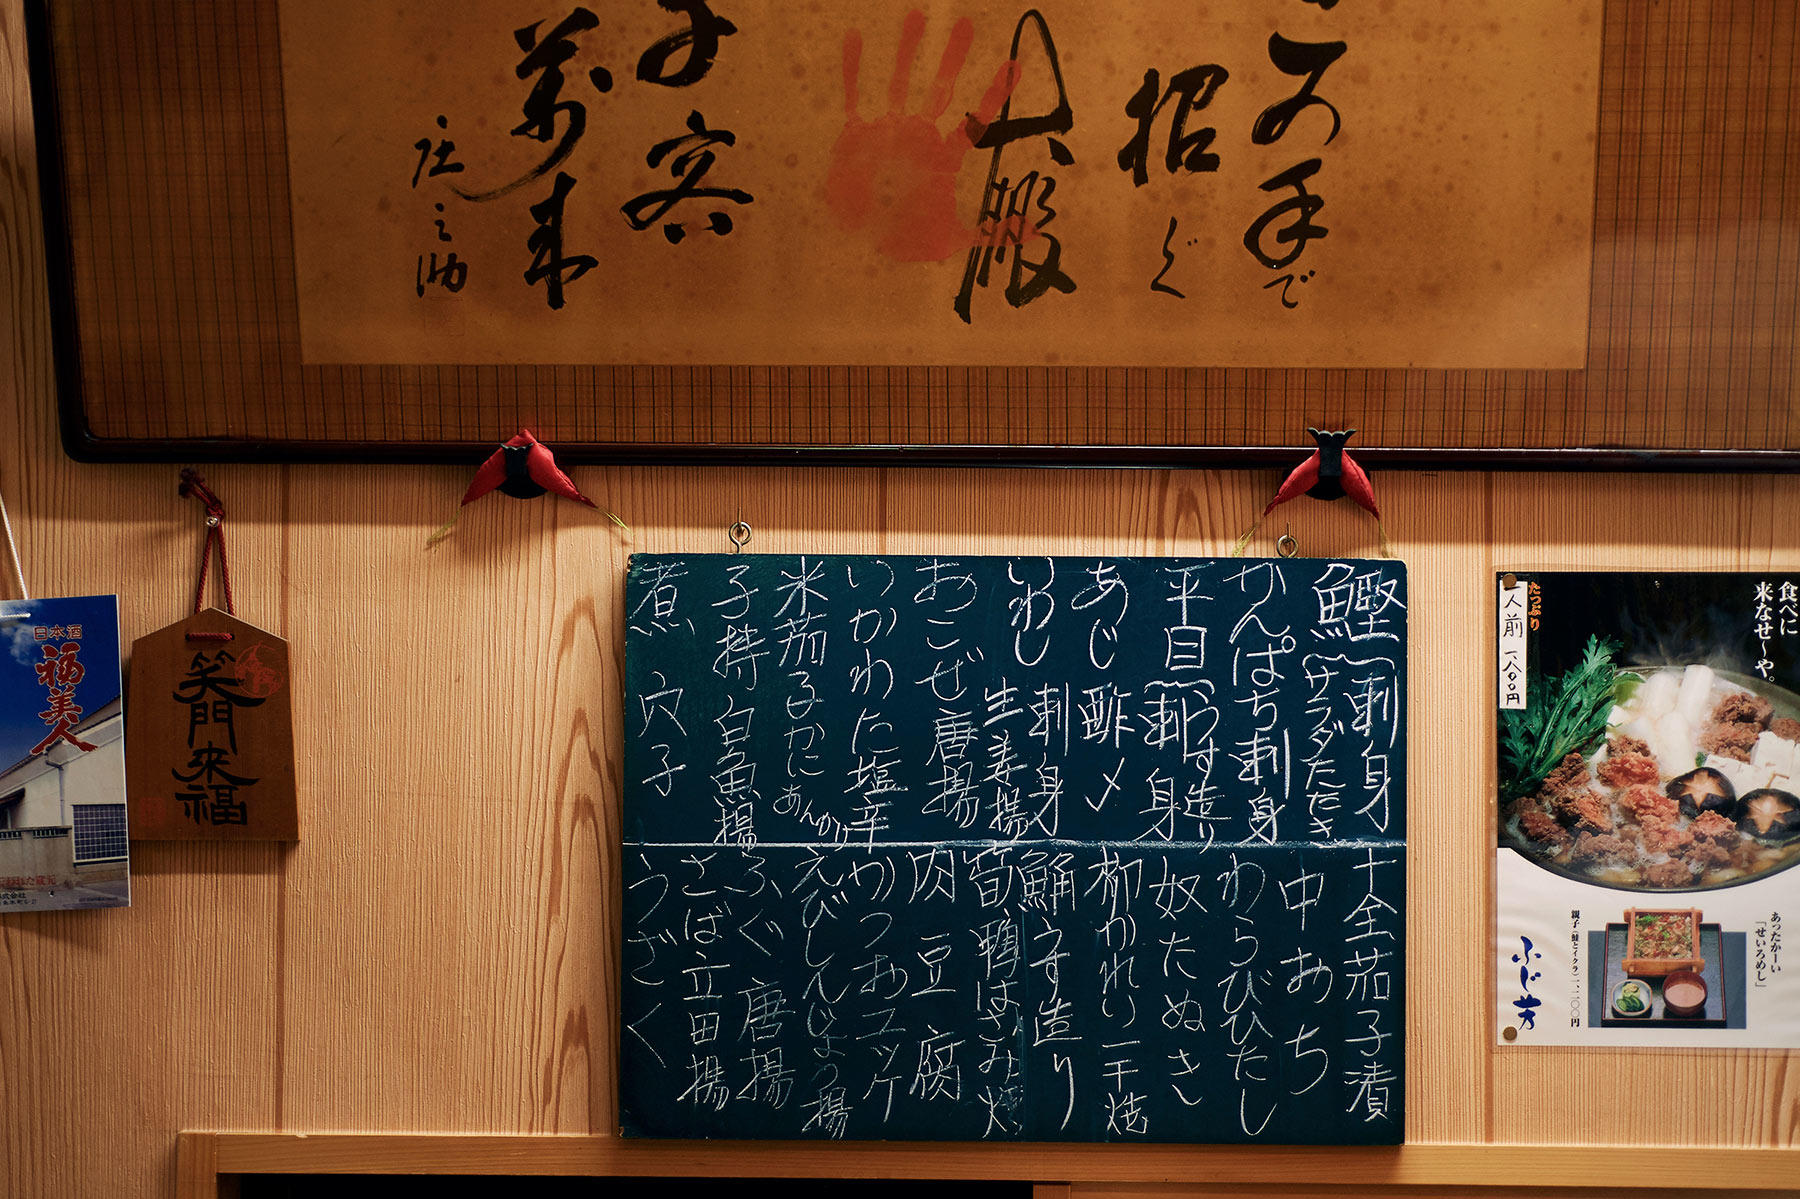 この手で
招ぐ
大盤
子客
萬来
庄之助
日本酒
福美人
笑門来福
鰹(刺身
サラダたたき
かんぱち刺身
平目(刺身
うす造り
あじ酢〆
いわし刺身
生姜揚
おこぜ唐揚
いかわた塩辛
米茄子かにあんかけ
子持白魚揚
煮穴子
十全茄子漬
中おち
わらびひたし
奴たぬき
柳かれい一干焼
鯒うす造り
筍鴨はさみ焼
肉豆腐
かつおユッケ
えびしんじょう揚
ふぐ唐揚
さば立田揚
うざく
食べに
来なせ〜や。
たっぷり
一人前 一、八〇〇円
あったかーい
「せいろめし」
親子(鮭とイクラ)一、二〇〇円